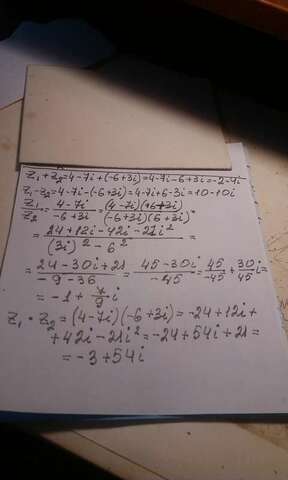 Z₁+Z₂=4-7i+(-6+3i)=4-7i-6+3i=-2-4i
Z₁-Z₂=4-7i-(-6+3i)=4-7i+6-3i=10-10i
Z₁/Z₂ = (4-7i)/(-6+3i) = (4-7i)(6+3i)/((-6+3i)(6+3i)) =
= (24+12i-42i-21i²)/((3i)²-6²) =
= (24-30i+21)/(-9-36) = (45-30i)/(-45) = 45/-45 + 30/45 i =
= -1+ i
Z₁ · Z₂ = (4-7i)(-6+3i) = -24+12i+
+42i-21i² = -24+54i+21=
= -3+54i